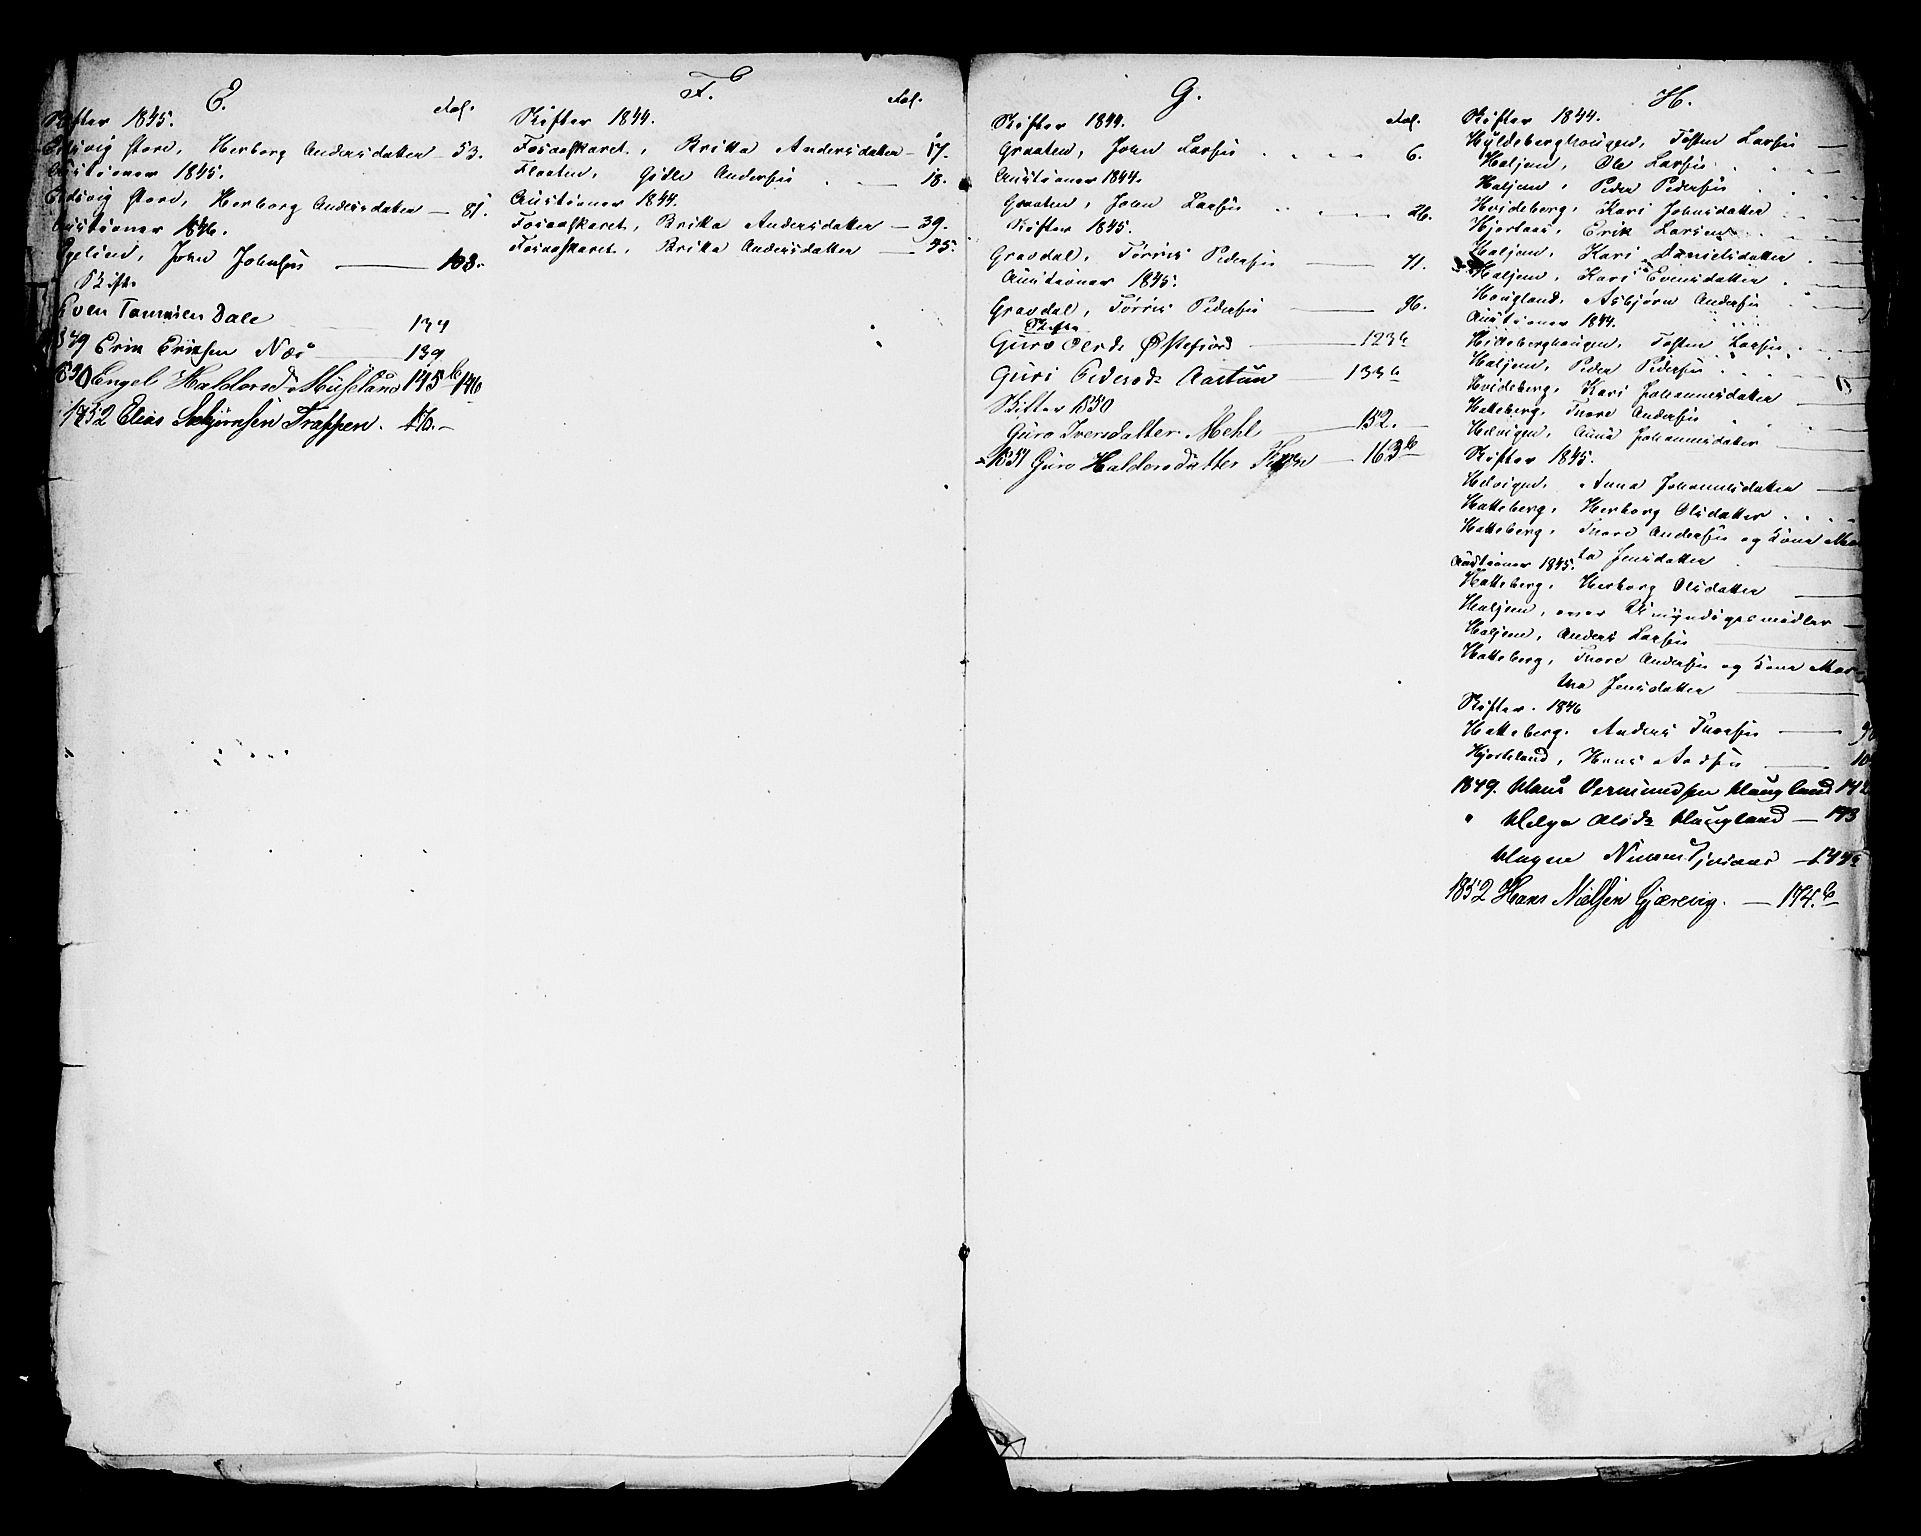 E.
Fol.
Skifter 1845.
Eidsvig store, Herborg Andersdatter — 53.
Auctioner 1845.
Eidsvig store, Herborg Andersdatter — 81.
Auctioner 1846.
John Johnsen — 103.
Skifte
Even Dale 137
1849 Erik Eriksen Næs 139
1850 Engel Haldorsd. Musland 145b 146
1852 Elias Trappen. 176.
F.
Fol.
Skifter 1844.
Fosaaskaret, Britta Andersdatter — 17.
Flaaten, Gidle Andersen — 18.
Auctioner 1844.
Fosaaskaret, Britta Andersdatter — 39.
Fosaaskaret, Britta Andersdatter — 45.
G.
Fol.
Skifter 1844.
Graaten, John Larsen 6.
Auctioner 1844.
Graaten, John Larsen 26.
Skifter 1845.
Gravdal, Tørris Pedersen — 71.
Auctioner 1845.
Gravdal, Tørris Pedersen — 96.
Skifte
Guro Østefsrød — 123b
Guri Pedersdr Aastun — 133b
Skifter 1850
Guro Iversdatter Mehl — 152.
1851 Guro Haldorsdatter — 163b
H.
Skifter 1844.
Hyldeberghougen, Tosten Larsen —
Haljem, Ole Larsen
Haljem, Peder Pedersen
Hvideberg, Kari Johnsdatter
Hjortaas, Erik Larsen
Haljem, Kari Danielsdatter
Haljem, Kari Evensdatter
Hougland, Asbjørn Andersen
Auctioner 1844.
Hildeberghougen, Tosten Larsen
Haljem, Peder Pedersen
Hvideberg, Kari Johannesdatter
Hatteberg, Thore Andersen
Helvigen, Anna Johannesdatter —
Skifter 1845.
Helvigen, Anna Johannesdatter —
Hatteberg, Herborg Olsdatter
Hatteberg, Thore Andersen og Kone Mar
ta Jensdatter
Auctioner 1845.
Hatteberg, Herborg Olsdatter
Haljem, over Umyndiges midler —
Haljem, Anders Larsen
Hatteberg, Thore Andersen og Kone Mar
tha Jensdatter —
Skifter. 1846
Hatteberg. Anders Thorsen —
Hjorteland, Hans — 10
1849. Hans Vermundsen Haugland 142
" Helge Olsdr Haugland — 143
Magne — 144b
1852 Hans Nielsen Gjærevig. — 174.b